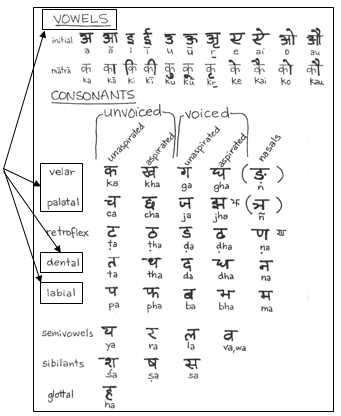 VOWELS
initial अ आ इ ई उ ऊ ऋ ए ऐ ओ औ
a ā i ī u ū ṛ e ai o au
mātrā क का कि की कु कू कृ के कै को कौ
ka kā ki kī ku kū kṛ ke kai ko kau
CONSONANTS
unvoiced voiced
unaspirated aspirated unaspirated aspirated nasals
velar क ख ग घ (ङ)
ka kha ga gha ṅ
palatal च छ ज झ (ञ)
ca cha ja jha ñ
retroflex ट ठ ड ढ ण
ṭa ṭha ḍa ḍha ṇa
dental त थ द ध न
ta tha da dha na
labial प फ ब भ म
pa pha ba bha ma
semivowels य र ल व
ya ra la va,wa
sibilants श ष स
śa ṣa sa
glottal ह
ha